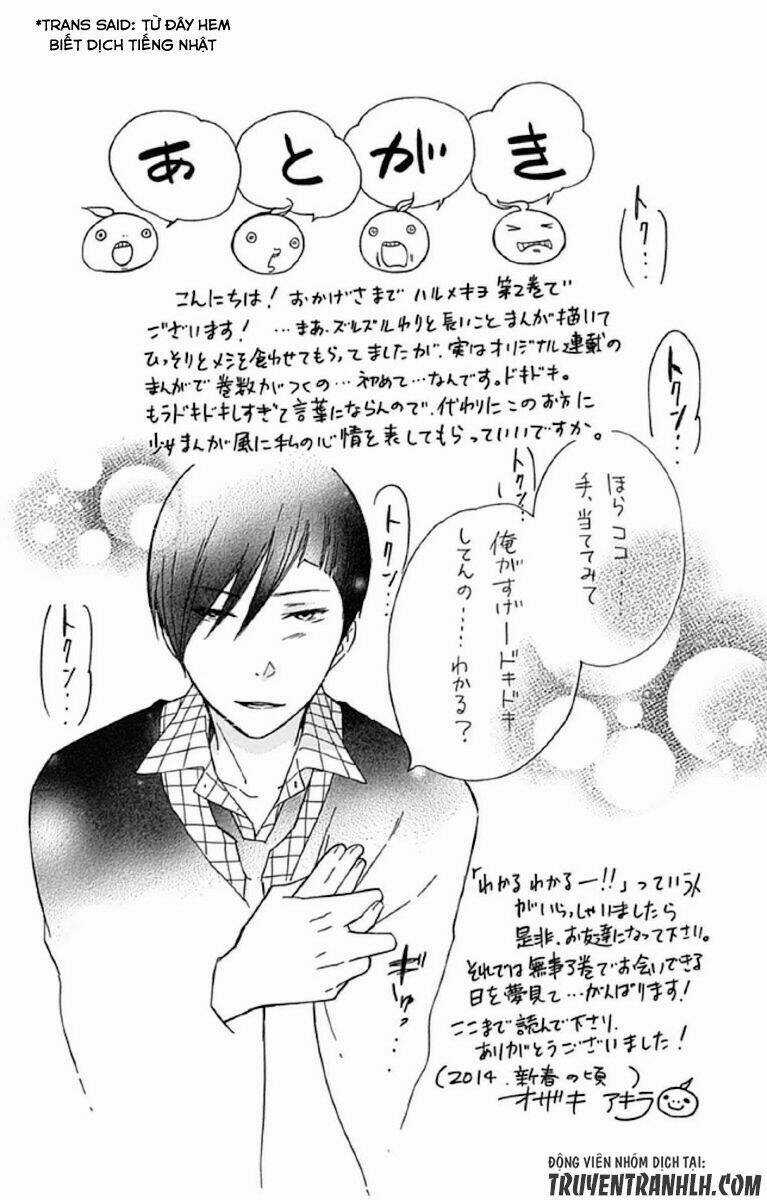 *TRANS SAID: TỪ ĐÂY HEM
BIẾT DỊCH TIẾNG NHẬT
あとがき
トクン…
こんにちは！おかげさまでハルメキヨ第2巻で
ございます！…まあ、ズルズルわりと長いことまんが描いて
ひっそりとメシを食わせてもらってましたが、実はオリジナル連載の
まんがで巻数がつくの…初めて…なんです。ドキドキ。
もうドキドキしすぎて言葉にならんので、代わりにこのお方に
少女まんが風に私の心情を表してもらっていいですか。
トクン…
トクン…
トクン…
トクン…
ほらココ……
手、当ててみて
俺がすげードキドキ
してんの……わかる？
ぎゅっ
「わかるわかるー!!」っていう人
がいらっしゃいましたら
是非、お友達になって下さい。
それでは無事3巻でお会いできる
日を夢見て…がんばります！
ここまで読んで下さり、
ありがとうございました！
(2014.新春の頃)
オザキ アキラ
ĐỘNG VIÊN NHÓM DỊCH TẠI:
TRUYENTRANHLH.COM